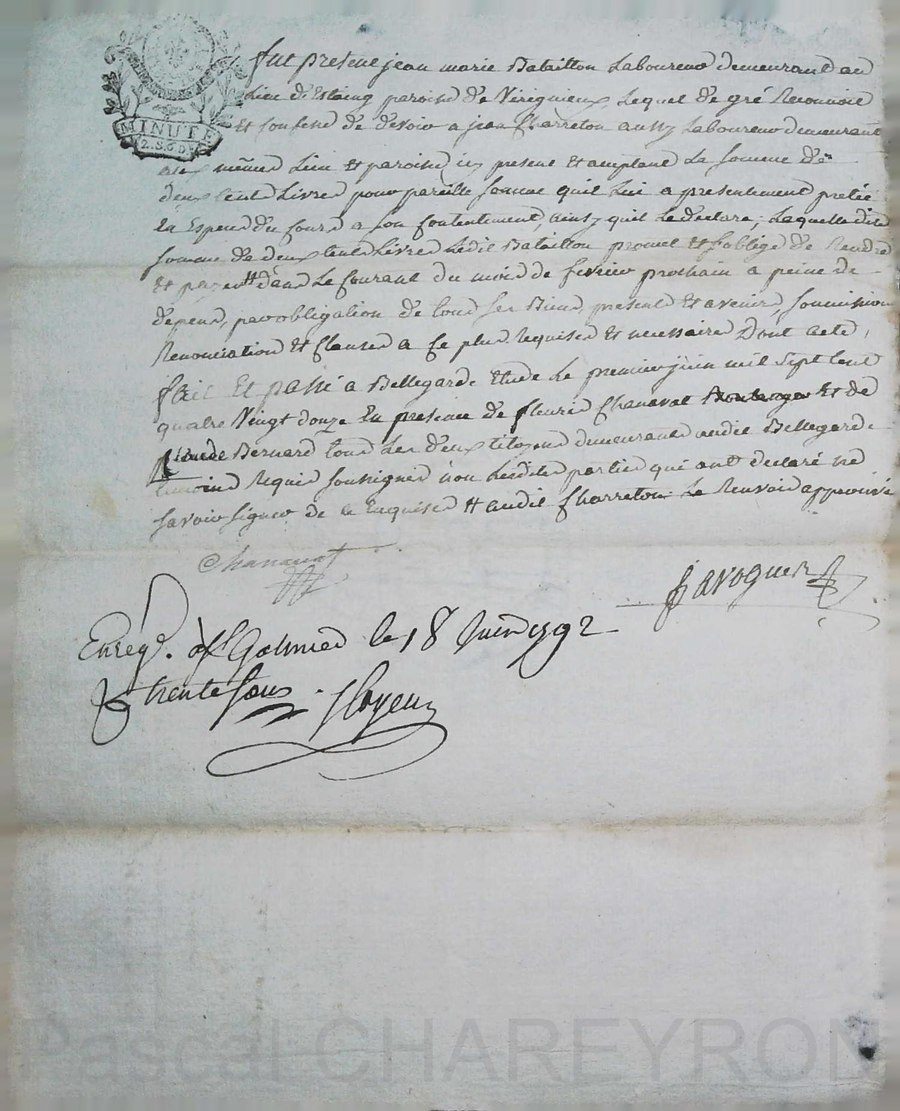 MINUTE
2. S. 6 D.
fut present jean marie Batailton Laboureur demeurant au
Lieu d'Estaing paroisse de Viriguieux, Lequel de gré Reconnoit
Et confesse de devoir a jean Charreton aussy Laboureur demeurant
au même Lieu et paroisse icy present et acceptant La somme de
deux cent Livres pour pareille somme quil Lui a presentement pretée
En Especes du Cours a son Contentement, ainsy quil Le declare; Laquelle ditte
somme de deux cent Livres Ledit Batailton promet et s'oblige de Rendre
et payer dans Le Courant du mois de fevrier prochain a peine de
depens, par obligation de tous ses Biens, present et avenir, soumission
Renonciation et Clauses a Ce plus Requises et necessaire Dont acte,
fait et passé a Bellegarde Etude Le premier juin mil sept cent
quatre Vingt douze En presence de fleurie Chanavat Et de
Claude Bernard tous Les deux citoyens demeurants audit Bellegarde
temoins Requis soussignés non Lesdites parties qui ont declaré ne
savoir signer de ce Enquises Et audit Charreton Le Renvoi approuvé
Chanavat
Javogues
Enreg. à St Galmier le 18 Juin 1792
trente sous
Pascal CHAREYRON